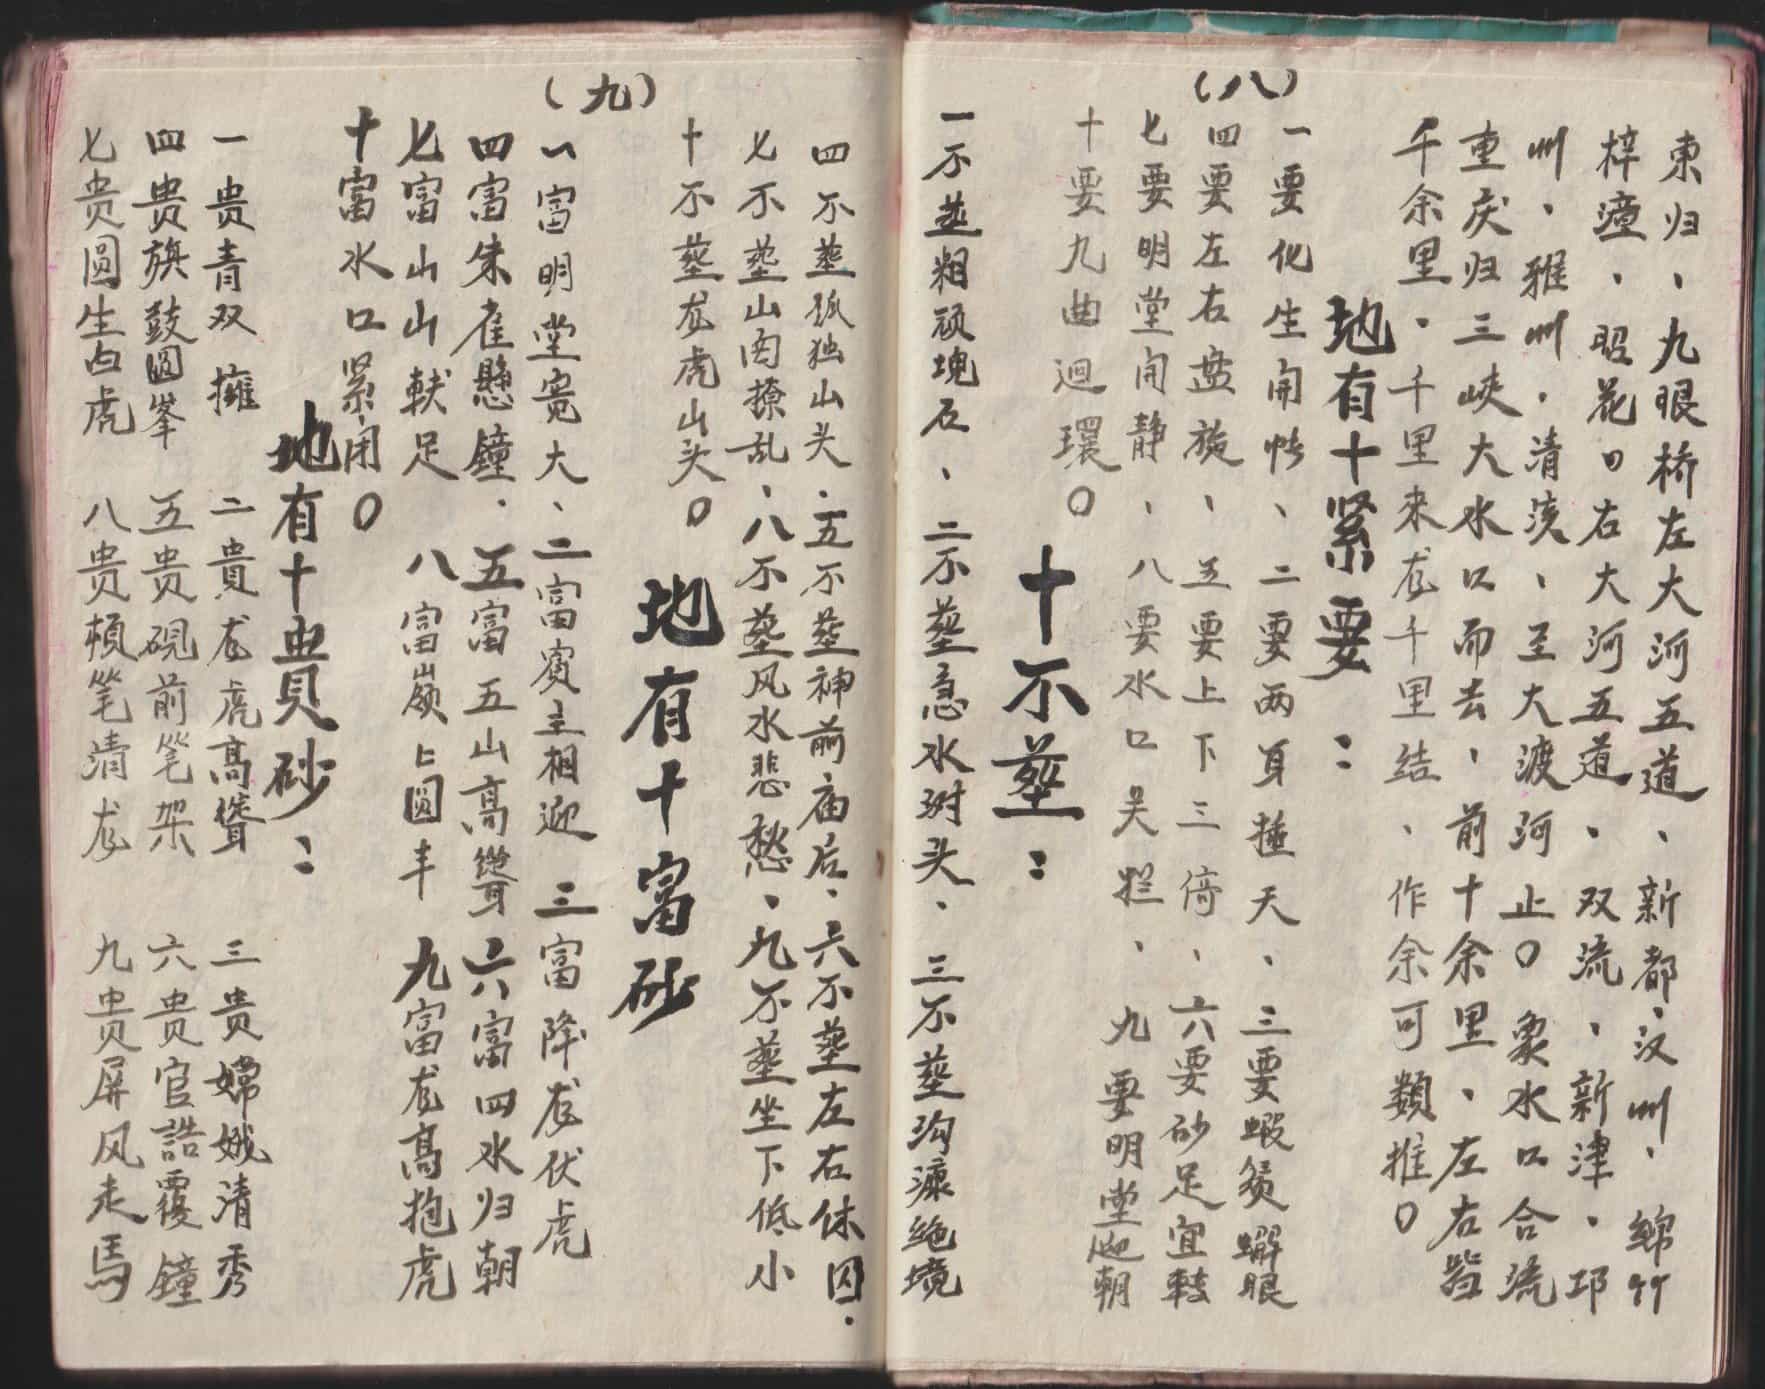 (八)
東归、九眼桥左大河五道、新都、汉州、绵竹
梓潼、昭花。右大河五道、双流、新津、邛
州、雅州、清溪、至大渡河止。象水口合流
重庆归三峡大水口而去、前十余里、左右皆
千余里。千里来龙千里结、作余可類推。
地有十紧要：
一要化生開帐、二要两耳插天、三要蝦须蠏眼
四要左右盘旋、五要上下三停、六要砂足宜转
七要明堂開静、八要水口关拦、九要明堂迎朝
十要九曲迴環。
十不塟：
一不塟粗顽塊石、二不塟急水討头、三不塟沟源绝境
(九)
四不塟孤独山头、五不塟神前庙后、六不塟左右休囚.
七不塟山肉撩乱、八不塟风水悲愁、九不塟坐下低小
十不塟龙虎山头。
地有十富砂
一富明堂宽大、二富賓主相迎 三富降龙伏虎
四富朱雀懸鐘. 五富五山高聳 六富四水归朝
七富山山 足 八富嶺上圆丰 九富龙高抱虎
十富水口紧闭。
地有十貴砂：
一贵青双擁 二貴龙虎高聳 三贵嫦娥清秀
四贵旗鼓圓峯 五贵硯前笔架 六贵官誥覆鐘
七贵圆生白虎 八贵頓笔清龙 九贵屏风走馬